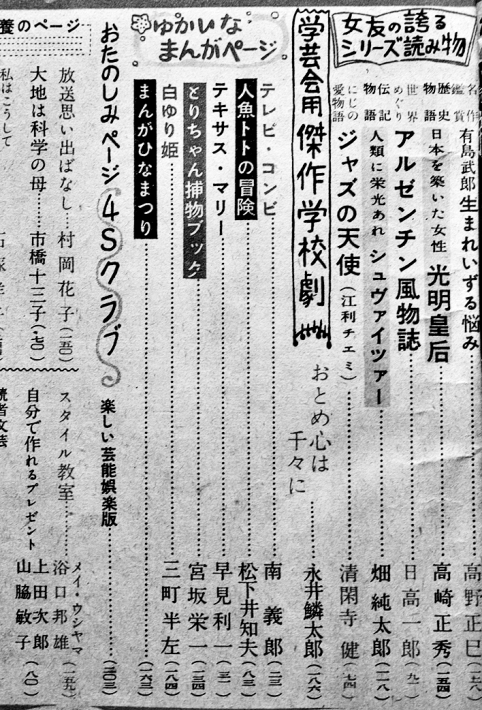 女友の誇る
シリーズ読み物
名作鑑賞 有島武郎 生まれいずる悩み 高野正巳
歴史物語 日本を築いた女性 光明皇后 高崎正秀 (一五四)
世界めぐり アルゼンチン風物誌 日高一郎
伝記物語 人類に栄光あれ シュヴァイツァー 畑純太郎 (一一八)
にじの愛物語 ジャズの天使 (江利チエミ) 清閑寺健 (七四)
学芸会用 傑作学校劇 おとめ心は千々に 永井鱗太郎 (一八六)
ゆかいな
まんがページ
テレビ・コンビ 南義郎 (二三)
人魚トトの冒険 松下井知夫 (八三)
テキサス・マリー 早見利一 (三一)
とりちゃん捕物ブック 宮坂栄一 (二三四)
白ゆり姫 三町半左 (一八四)
まんがひなまつり (一六三)
おたのしみページ 4Sクラブ 楽しい芸能娯楽版 (二〇三)
養のページ
放送思い出ばなし 村岡花子 (一五〇)
大地は科学の母 市橋十三子 (七〇)
私はこうして
スタイル教室 メイ・ウシヤマ 谷口邦雄 (一五九)
自分で作れるプレゼント 上田次郎 山脇敏子 (八〇)
読者文芸